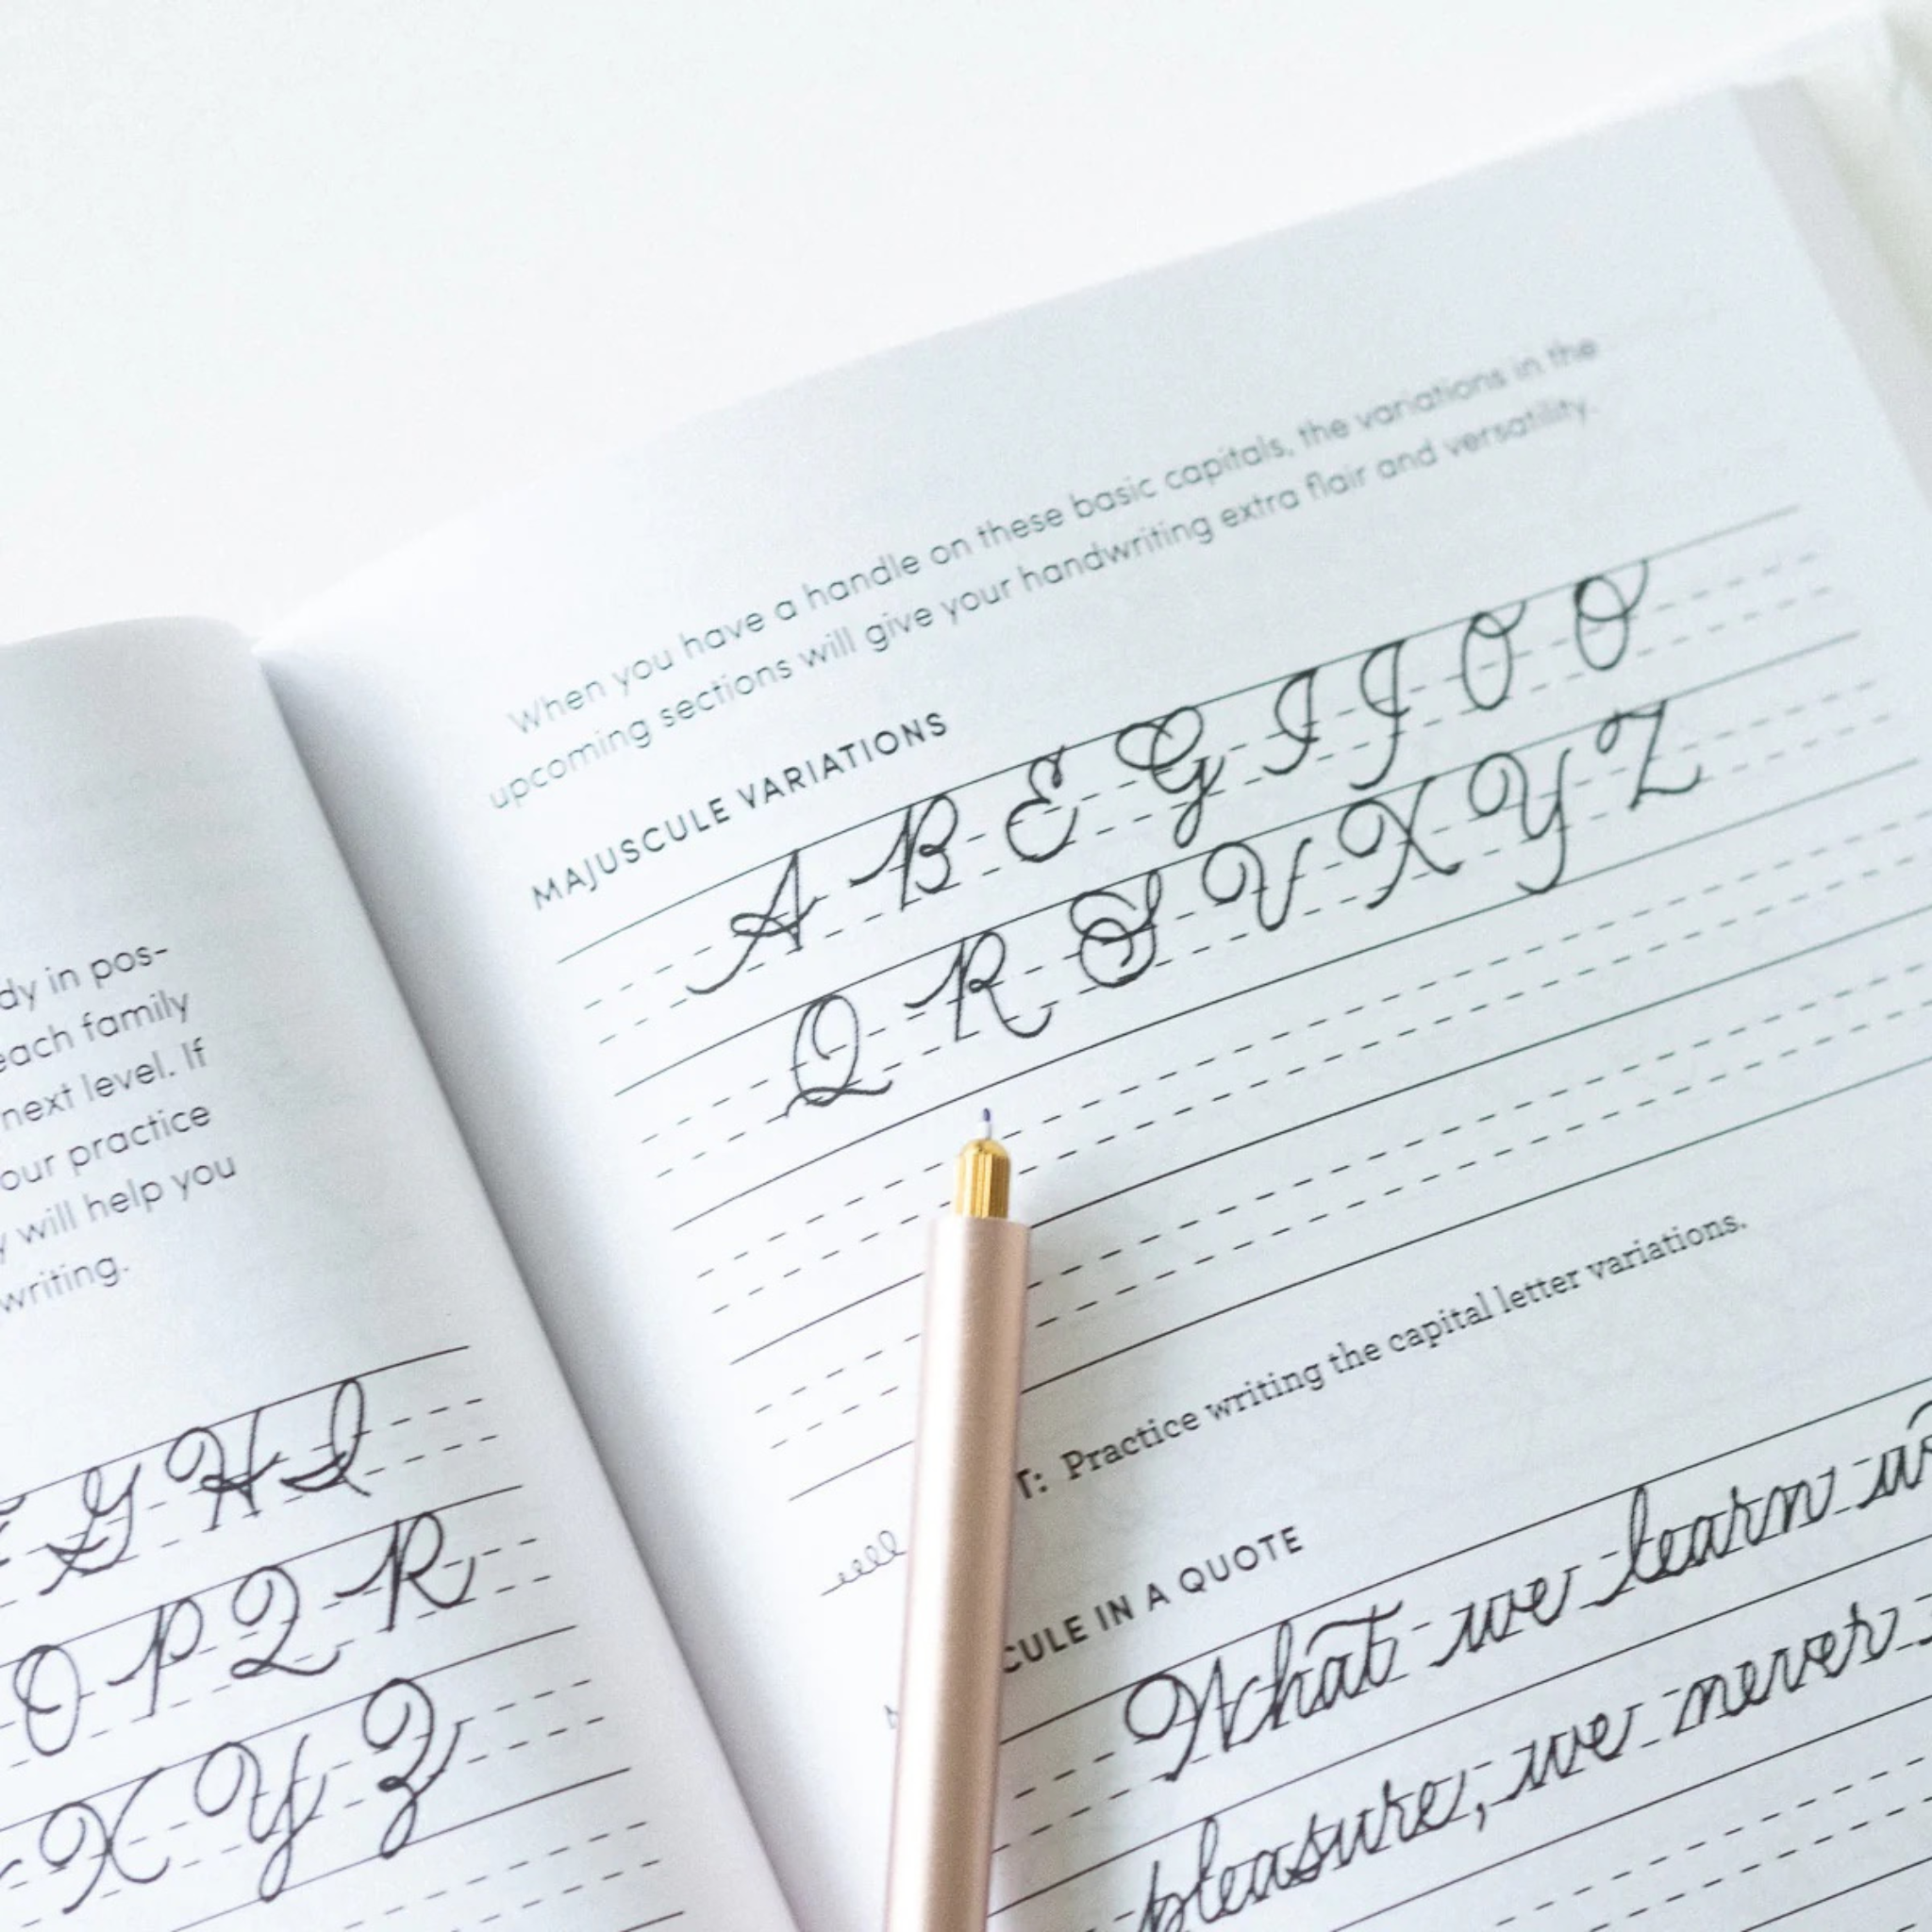 dy in pos-
each family
next level. If
our practice
will help you
writing.
G H I
O P Q R
X Y Z
When you have a handle on these basic capitals, the variations in the
upcoming sections will give your handwriting extra flair and versatility.
MAJUSCULE VARIATIONS
A B E G I J O O
Q R S V X Y Z
T: Practice writing the capital letter variations.
CULE IN A QUOTE
What we learn
pleasure, we never